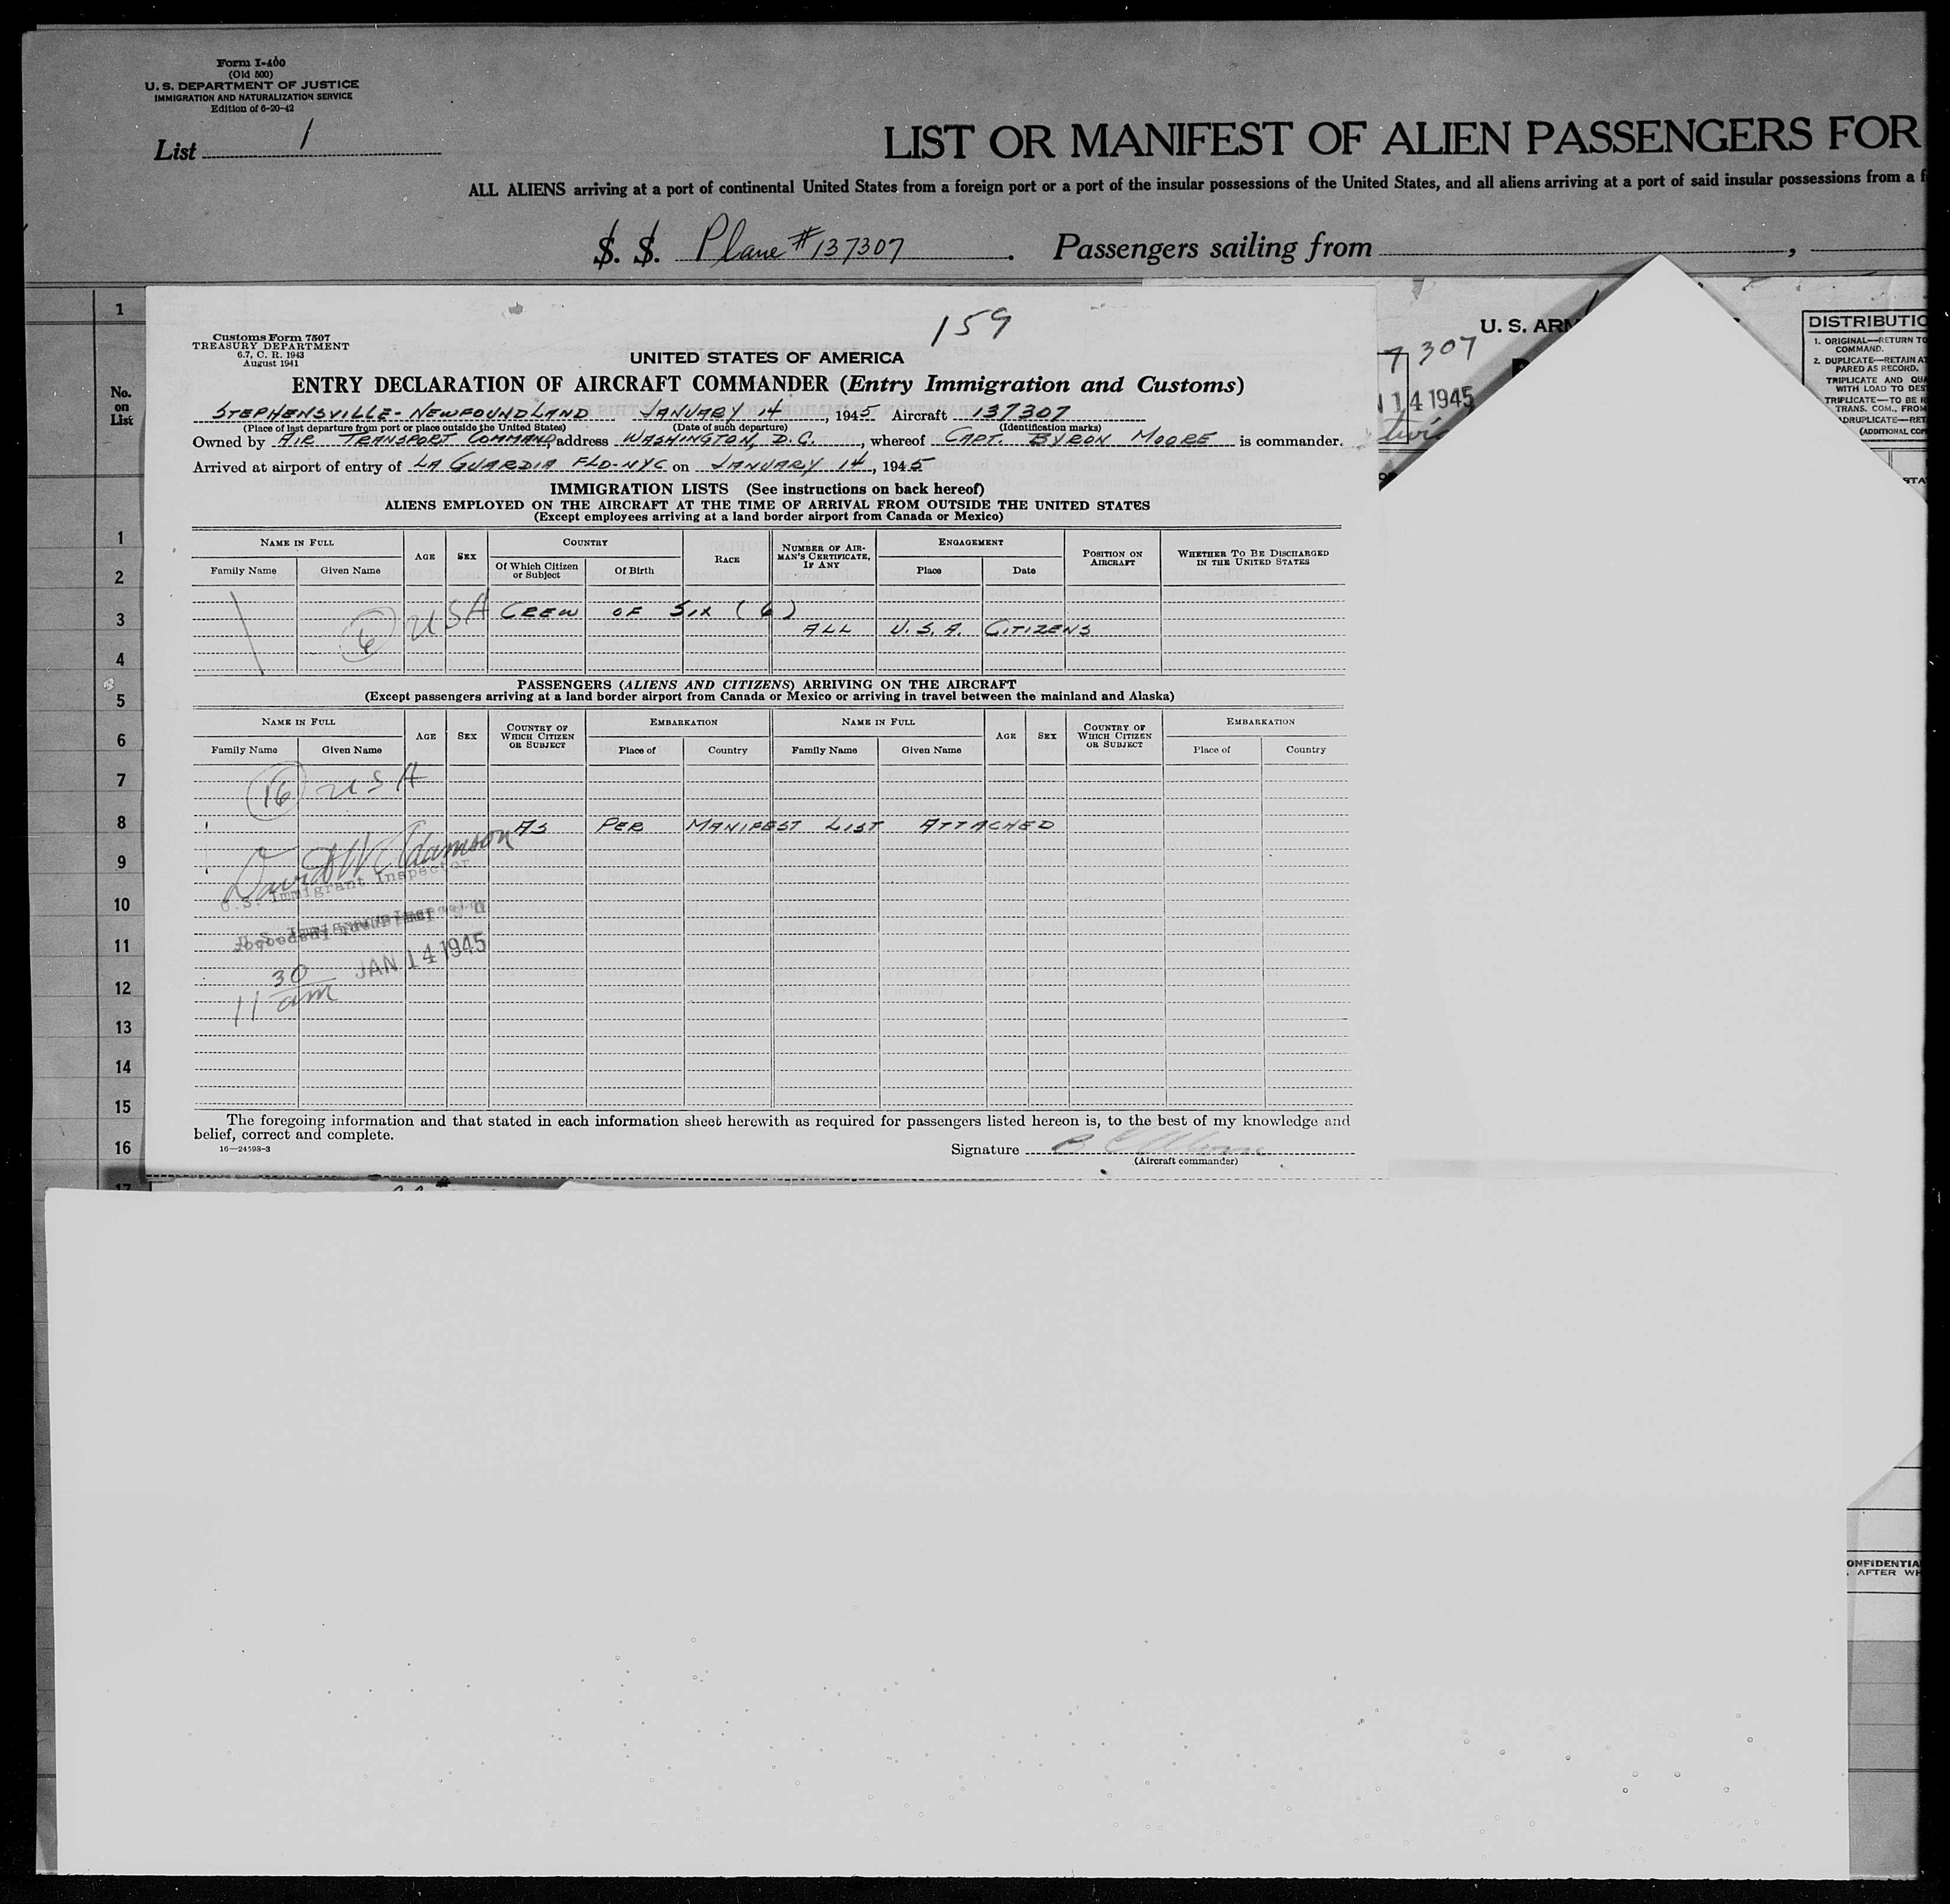 Form I-400
(Old 500)
U. S. DEPARTMENT OF JUSTICE
IMMIGRATION AND NATURALIZATION SERVICE
Edition of 6-20-42
List 1
LIST OR MANIFEST OF ALIEN PASSENGERS FOR
ALL ALIENS arriving at a port of continental United States from a foreign port or a port of the insular possessions of the United States, and all aliens arriving at a port of said insular possessions from a f
S. S. Plane # 137307 . Passengers sailing from ,
159
Customs Form 7507
TREASURY DEPARTMENT
6.7, C. R. 1943
August 1941
UNITED STATES OF AMERICA
ENTRY DECLARATION OF AIRCRAFT COMMANDER (Entry Immigration and Customs)
STEPHENSVILLE - NEWFOUNDLAND JANUARY 14, 1945 Aircraft 137307
(Place of last departure from port or place outside the United States) (Date of such departure) (Identification marks)
Owned by AIR TRANSPORT COMMAND, address WASHINGTON, D.C., whereof CAPT. BYRON MOORE is commander.
Arrived at airport of entry of LA GUARDIA FLD-NYC on JANUARY 14, 1945
IMMIGRATION LISTS (See instructions on back hereof)
ALIENS EMPLOYED ON THE AIRCRAFT AT THE TIME OF ARRIVAL FROM OUTSIDE THE UNITED STATES
(Except employees arriving at a land border airport from Canada or Mexico)
NAME IN FULL AGE SEX COUNTRY RACE NUMBER OF AIRMAN'S CERTIFICATE, IF ANY ENGAGEMENT POSITION ON AIRCRAFT WHETHER TO BE DISCHARGED IN THE UNITED STATES
Family Name Given Name Of Which Citizen or Subject Of Birth Place Date
6 USA CREW OF SIX (6)
ALL U.S.A. CITIZENS
PASSENGERS (ALIENS AND CITIZENS) ARRIVING ON THE AIRCRAFT
(Except passengers arriving at a land border airport from Canada or Mexico or arriving in travel between the mainland and Alaska)
NAME IN FULL AGE SEX COUNTRY OF WHICH CITIZEN OR SUBJECT EMBARKATION NAME IN FULL AGE SEX COUNTRY OF WHICH CITIZEN OR SUBJECT EMBARKATION
Family Name Given Name Place of Country Family Name Given Name Place of Country
16 USA
AS PER MANIFEST LIST ATTACHED
David W Adamson
U.S. Immigrant Inspector
JAN 14 1945
11 30 am
The foregoing information and that stated in each information sheet herewith as required for passengers listed hereon is, to the best of my knowledge and
belief, correct and complete.
16—24598-3
Signature
(Aircraft commander)
No.
on
List
1
2
3
4
5
6
7
8
9
10
11
12
13
14
15
16
17
U. S. ARM
7307
N 14 1945
DISTRIBUTIO
1. ORIGINAL—RETURN TO
COMMAND.
2. DUPLICATE—RETAIN AT
PARED AS RECORD.
TRIPLICATE AND QUA
WITH LOAD TO DES
TRIPLICATE—TO BE R
TRANS. COM., FROM
ADRUPLICATE—RET
(ADDITIONAL COP
STA
ONFIDENTIA
AFTER WH